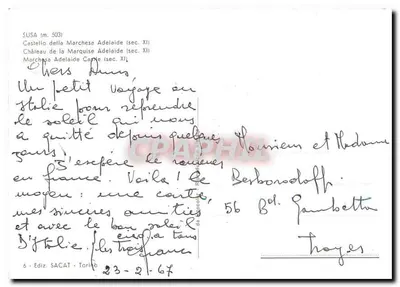 SUSA (m. 503)
Castello della Marchesa Adelaide (sec. XI)
Château de la Marquise Adelaide (sec. XI)
Marchesa Adelaide Castle (sec. XI)
Chers Amis,
Un petit voyage en
Italie pour reprendre
le soleil qui nous
a quitté depuis quelques
jours.
J'espère le ramener
en france. Voila! le
moyen: une carte,
mes sincères amitiés
et avec le bon soleil
D'Italie. les trois
23-2-67
6 - Ediz. SACAT - Torino
CPAPHIL
Monsieur et Madame
56 Bd. Gambetta
Troyes